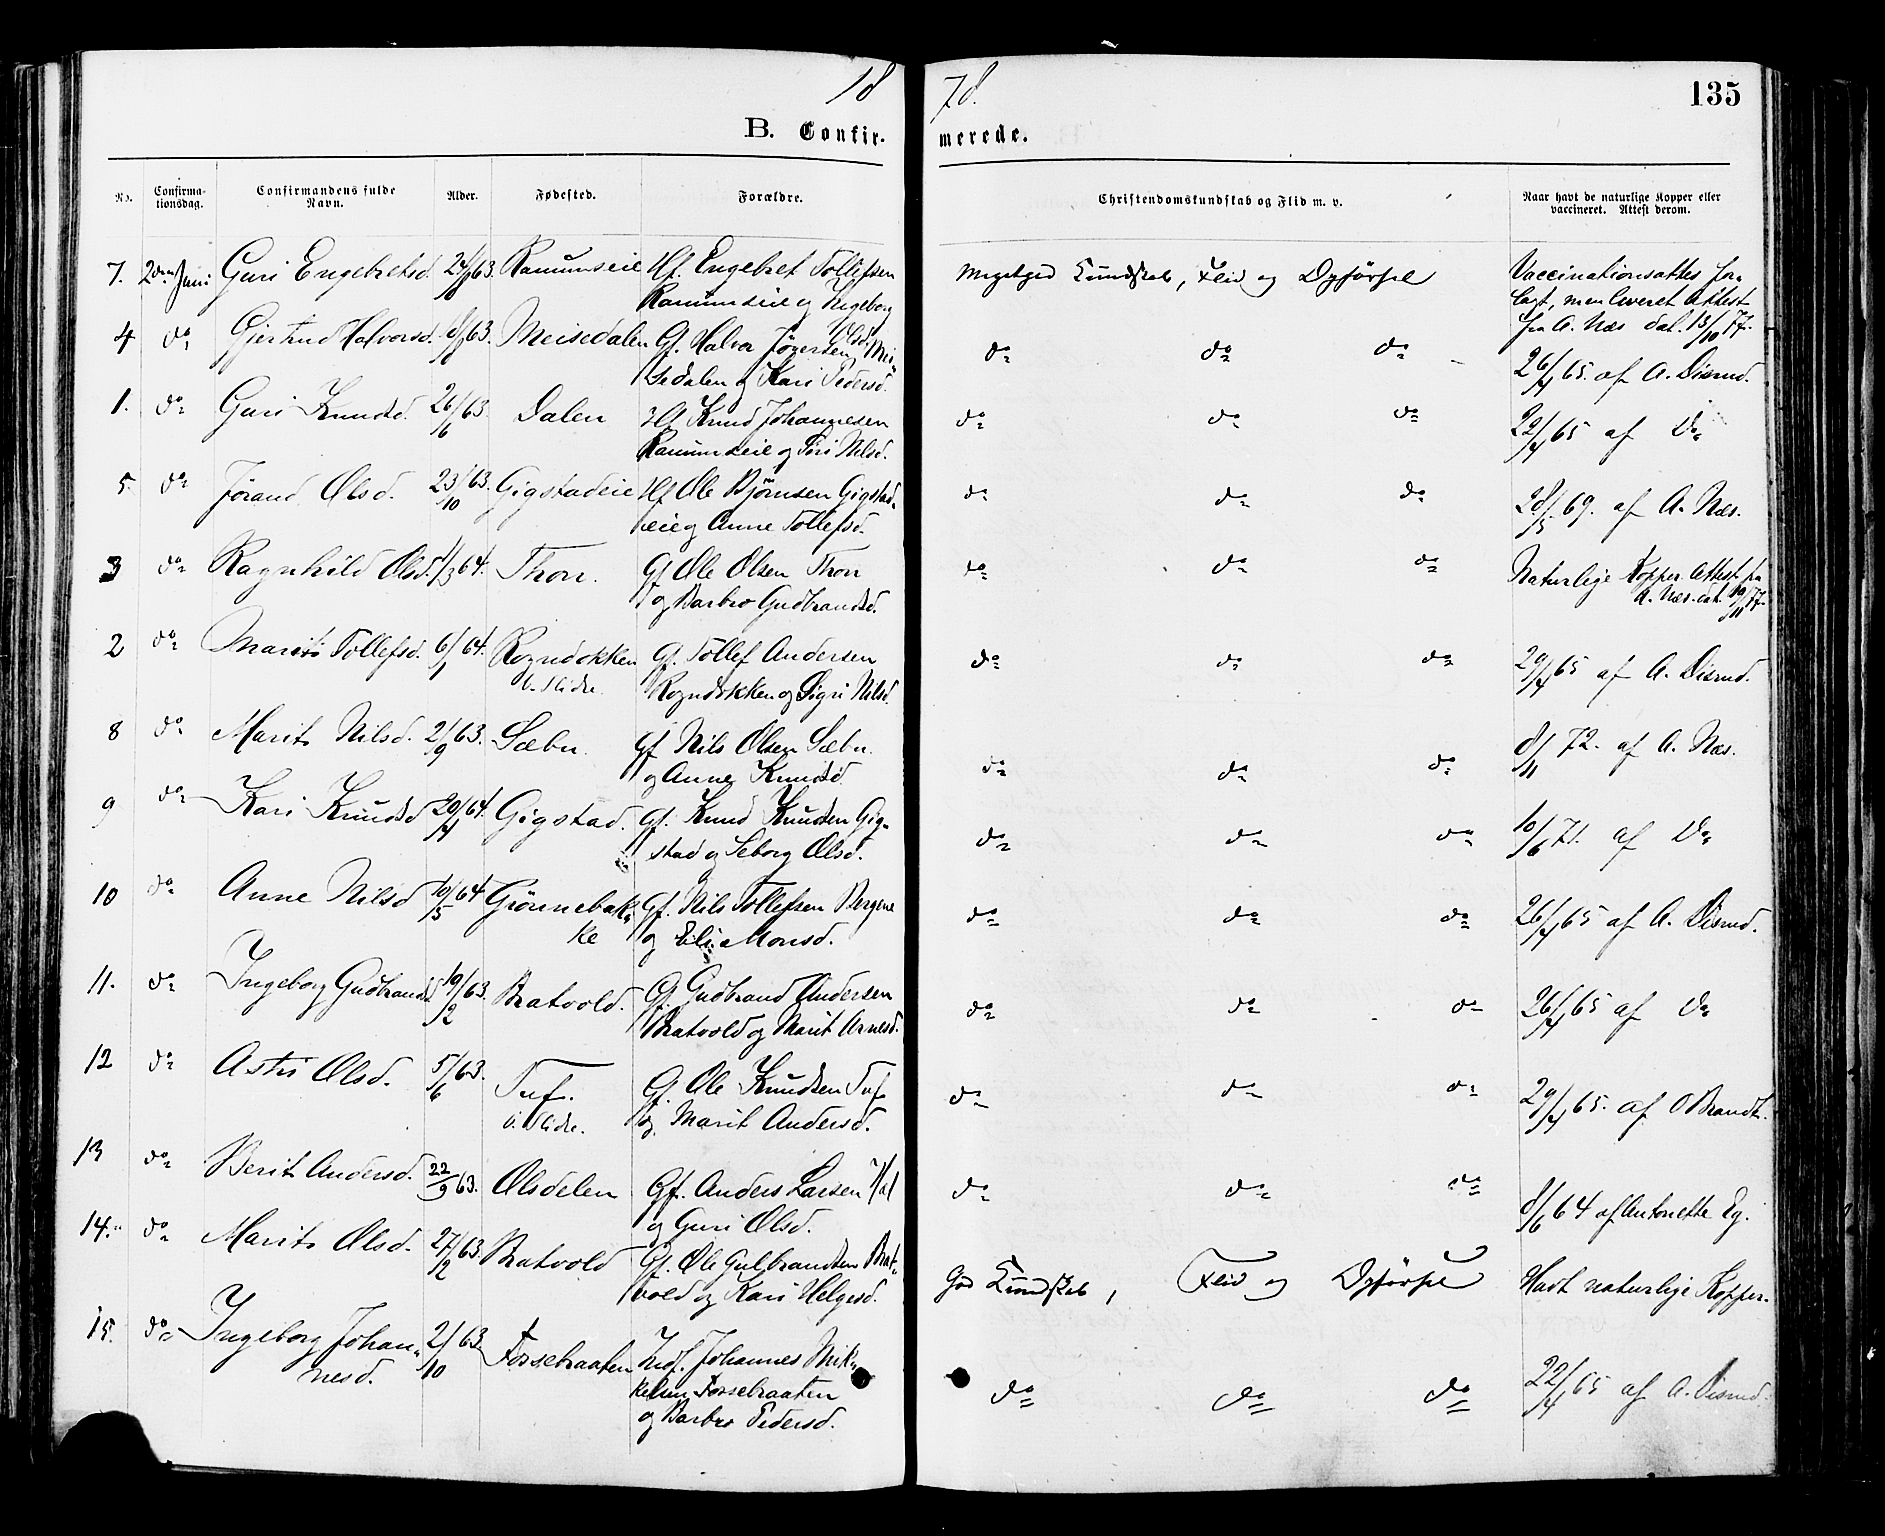 18
78.
135
B. Confir-
merede.
No.
Confirma-
tionsdag.
Confirmandens fulde
Navn.
Alder.
Fødested.
Forældre.
Christendomskundskab og Flid m. v.
Naar havt de naturlige Kopper eller
vaccineret. Attest derom.
7. 2den Juni Guri Engebretsd. 63. Ranumseie Hf. Engebret Tollefsen
Ranumseie og Ingeborg
Olsd.
Megetgod Kundskab, Flid og Opførsel
Vaccinationsattest
lagt, men leveret Attest
fra A. Næs dat. 13/10 77.
4 do Gjertrud Halvorsd. 63. Meisedalen Gf. Halvor Mei-
sedalen og Kari Pedersd.
do do do
26/4 65. af A. Disrud.
1. do Guri Knudsd. 26/6 63. Dalen Hf Knud Johannesen
Ranumseie og Nilsd.
do do do
22/4 65 af do
5. do Jørand Olsd. 23/10 63. Gigstadeie Hf Ole Bjørnsen Gigstad-
eie og Anne Tollefsd.
do do do
28/5 69. af A. Næs.
3 do Ragnhild Olsd. 1/3 64. Thon. Gf Ole Olsen Thon
og Barbro Gudbrandsd.
do do do
Naturlige Kopper. Attest fra
A. Næs. dat. 77.
2 do Marit Tollefsd. 6/1 64. Rogndokken
V. Slidre.
Gf. Tollef Andersen
Rogndokken og Sigri Nilsd.
do do do
29/4 65 af A. Disrud.
8 do Marit Nilsd. 2/9 63. Sæbu. Gf Nils Olsen Sæbu.
og Anne Knudsd.
do do do
8/11 72. af A. Næs.
9 do Kari Knudsd 64. Gigstad. Gf. Knud Knudsen Gig-
stad og Seborg Olsd.
do do do
10/6 71. af do
10 do Anne Nilsd 10/5 64 Grønnebak-
ke
Gf. Nils Tollefsen Bergene
og Eli Monsd.
do do do
26/4 65 af A. Disrud.
11. do Ingeborg Gudbrandsd 19/2 63. Bratvold. Gf. Gudbrand Andersen
Bratvold og Marit Arnesd.
do do do
26/4 65 af do
12 do Astri Olsd. 5/6 63. Tuf.
V. Slidre.
Gf. Ole Knudsen Tuf
og Marit Andersd.
do do do
29/4 65. af O Brandt.
13 do Berit Andersd. 22/9 63. Olsdelen Gf. Anders Larsen
og Guri Olsd.
do do do
8/6 64 af Antonette Eg.
14. do Marit Olsd. 27/2 63. Bratvold Gf. Ole Gulbrandsen Brat-
vold og Kari Helgesd.
God Kundskab, Flid og Opførsel
Havt naturlige Kopper.
15. do Ingeborg Johan-
nesd.
2/10 63. Fossebraaten Indf. Johannes Mik-
kelsen Fossebraaten
og Barbro Pedersd.
do do do
22/4 65 af A. Disrud.